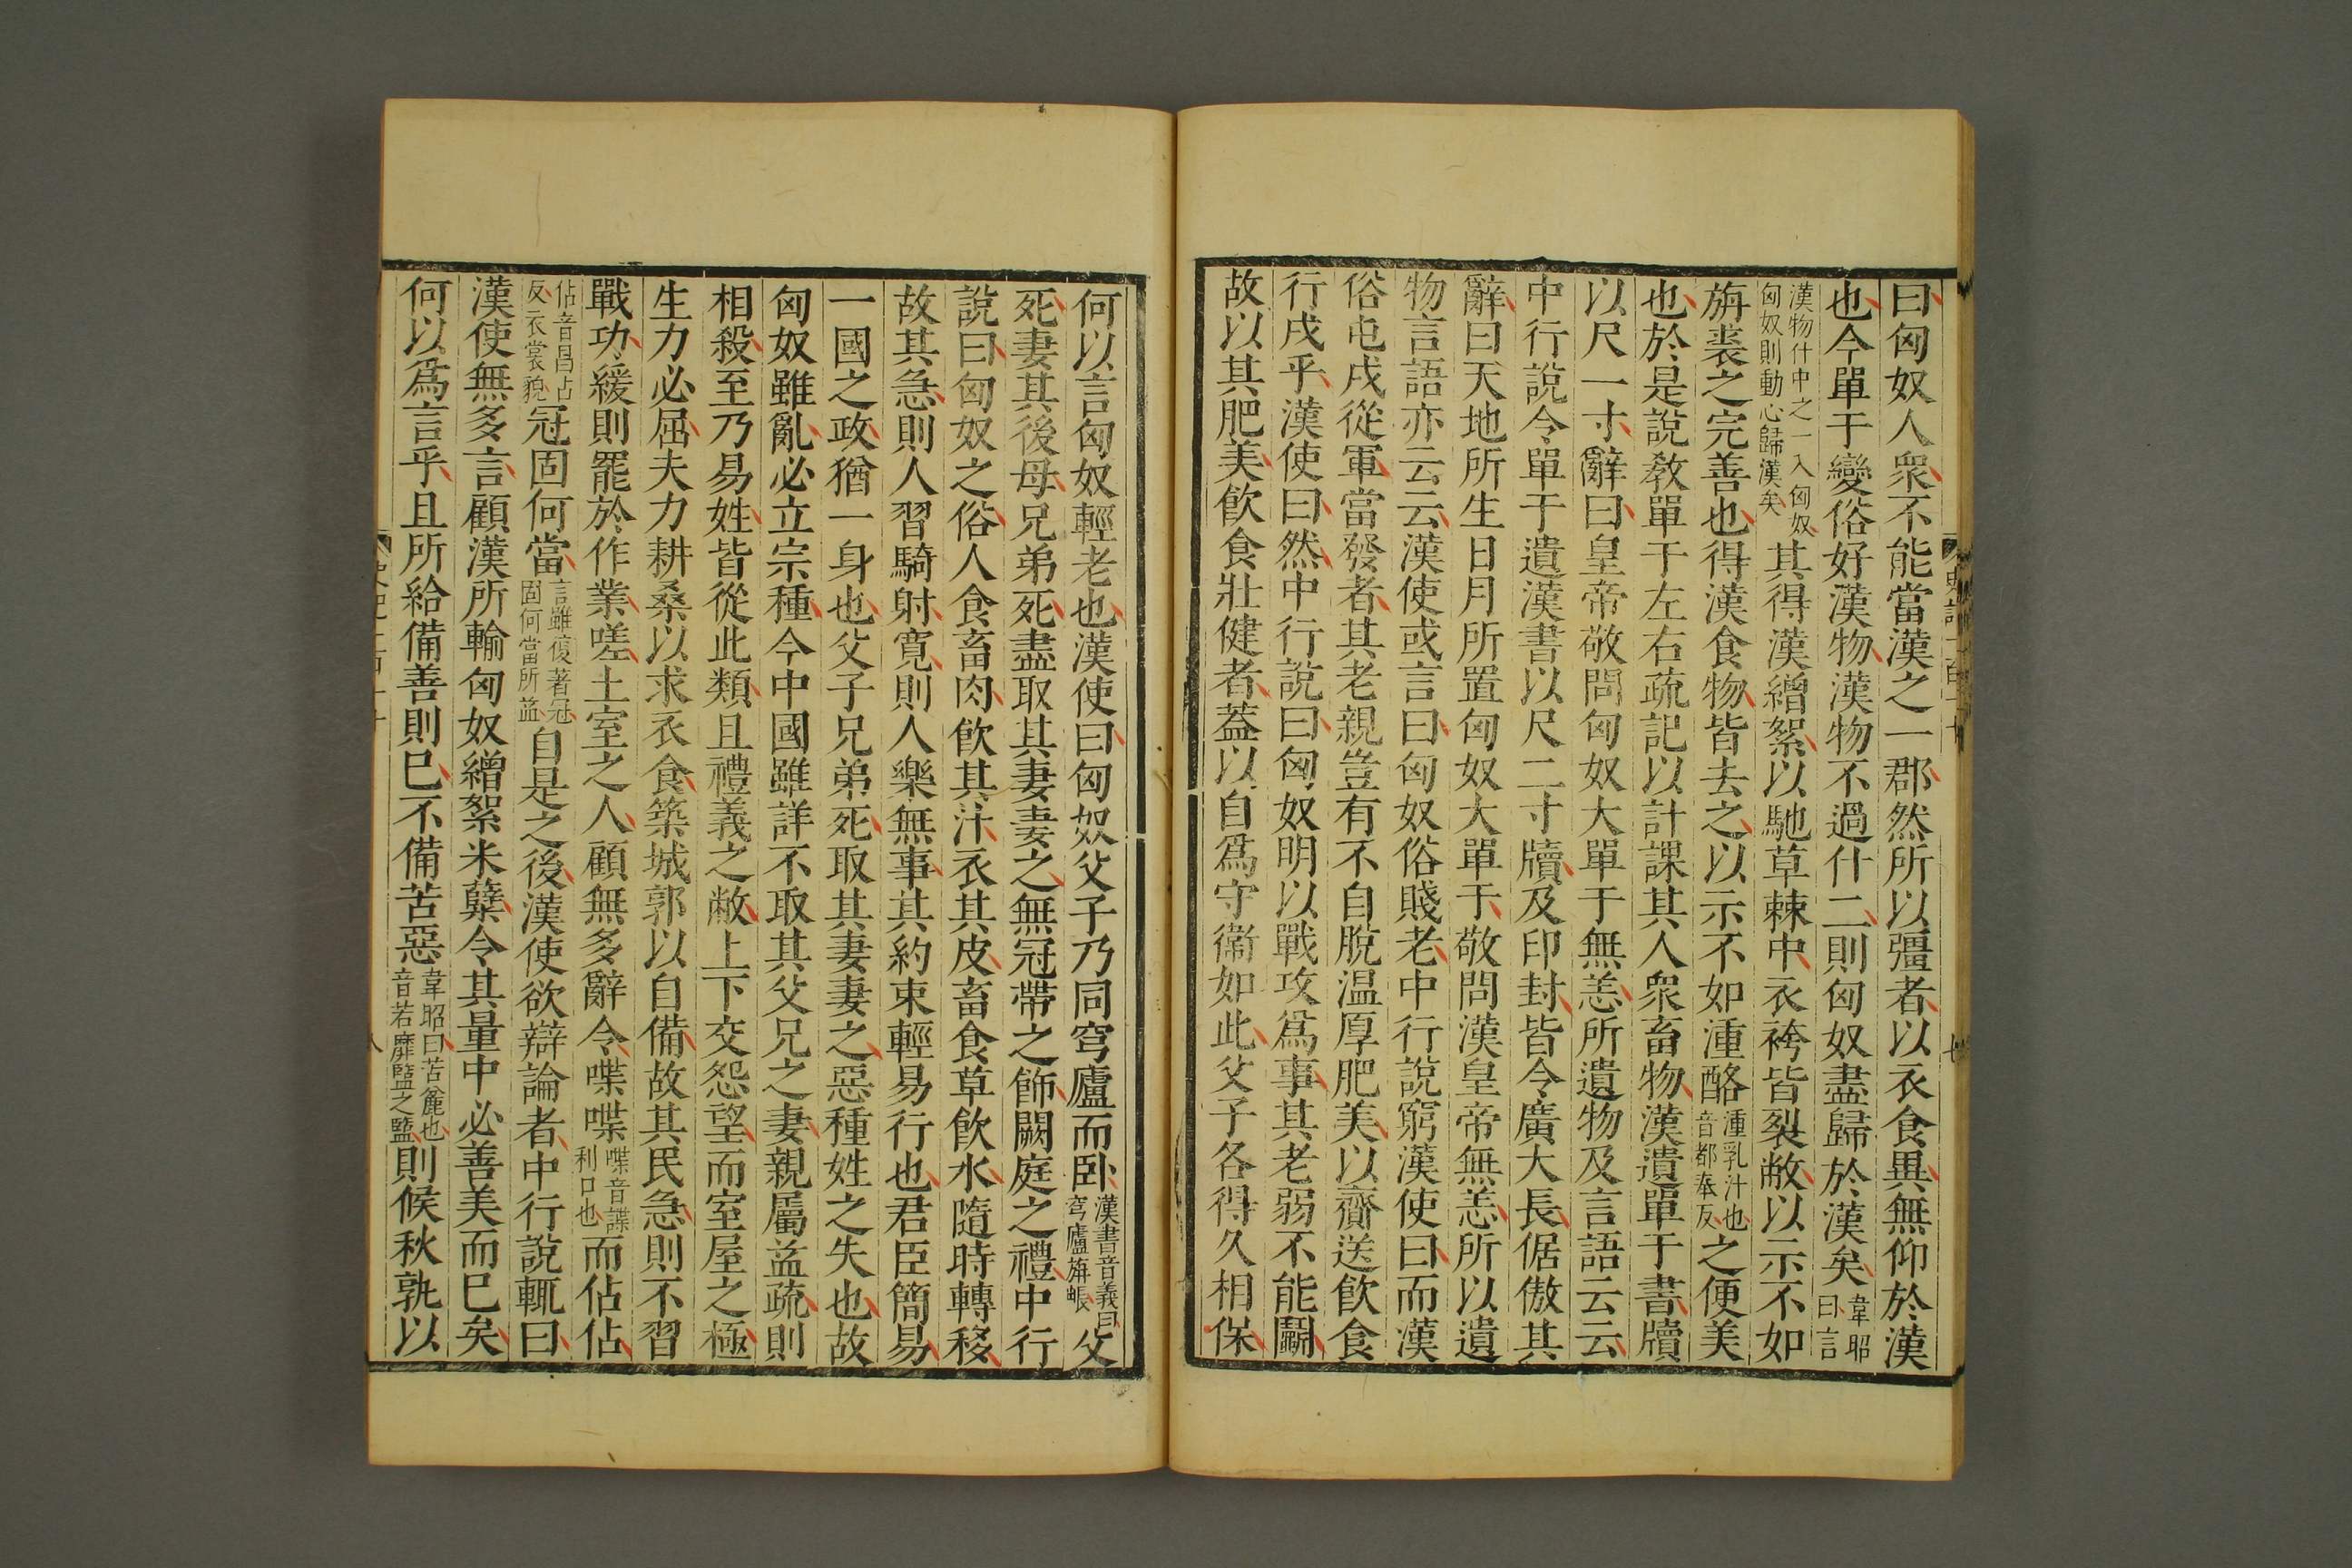 曰匈奴人衆不能當漢之一郡然所以彊者以衣食異無仰於漢
也今單于變俗好漢物漢物不過什二則匈奴盡歸於漢矣韋昭曰言
漢物什中之一入匈奴匈奴則動心歸漢矣其得漢繒絮以馳草棘中衣袴皆裂敝以示不如
旃裘之完善也得漢食物皆去之以示不如湩酪湩乳汁也音都奉反之便美
也於是說教單于左右疏記以計課其人衆畜物漢遺單于書牘
以尺一寸辭曰皇帝敬問匈奴大單于無恙所遺物及言語云云
中行說令單于遺漢書以尺二寸牘及印封皆令廣大長倨傲其
辭曰天地所生日月所置匈奴大單于敬問漢皇帝無恙所以遺
物言語亦云云漢使或言曰匈奴俗賤老中行說窮漢使曰而漢
俗屯戍從軍當發者其老親豈有不自脫温厚肥美以齎送飲食
行戍乎漢使曰然中行說曰匈奴明以戰攻爲事其老弱不能鬭
故以其肥美飲食壯健者蓋以自爲守衞如此父子各得久相保
史記一百一十
七
何以言匈奴輕老也漢使曰匈奴父子乃同穹廬而卧漢書音義曰穹廬旃帳父
死妻其後母兄弟死盡取其妻妻之無冠帶之飾闕庭之禮中行
說曰匈奴之俗人食畜肉飲其汁衣其皮畜食草飲水隨時轉移
故其急則人習騎射寛則人樂無事其約束輕易行也君臣簡易
一國之政猶一身也父子兄弟死取其妻妻之惡種姓之失也故
匈奴雖亂必立宗種今中國雖詳不取其父兄之妻親屬益疏則
相殺至乃易姓皆從此類且禮義之敝上下交怨望而室屋之極
生力必屈夫力耕桑以求衣食築城郭以自備故其民急則不習
戰功緩則罷於作業嗟土室之人顧無多辭令喋喋喋音諜利口也而佔佔
佔音昌占反衣裳貌冠固何當言雖復著冠固何當所益自是之後漢使欲辯論者中行說輒曰
漢使無多言顧漢所輸匈奴繒絮米糱令其量中必善美而巳矣
何以爲言乎且所給備善則巳不備苦惡韋昭曰苦麄也音若靡盬之盬則候秋孰以
八